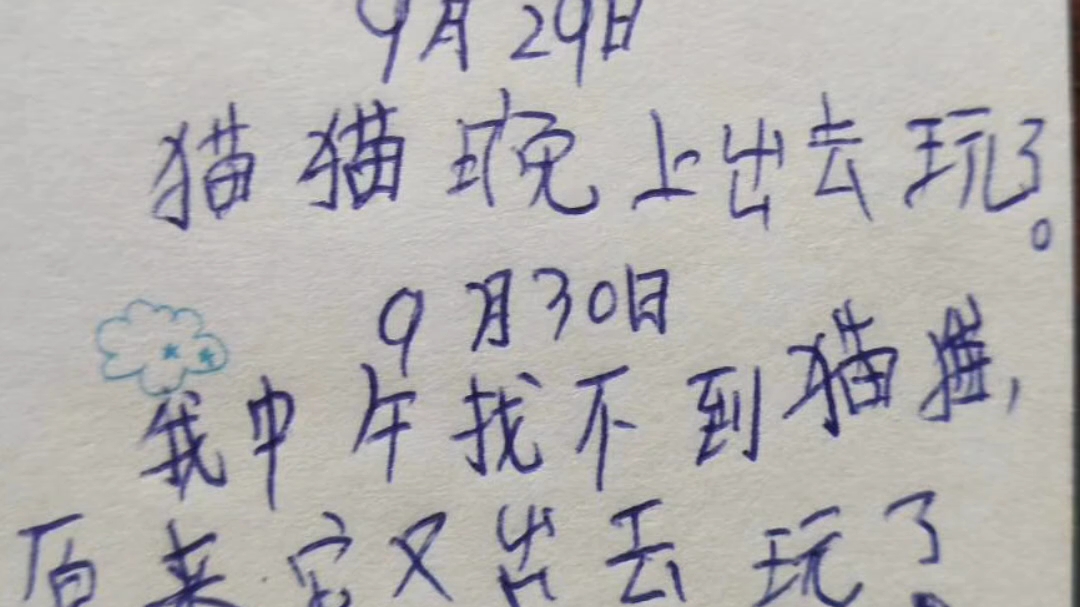 9月29日
猫猫晚上出去玩了。
9月30日
我中午找不到猫猫，
原来它又出去玩了。